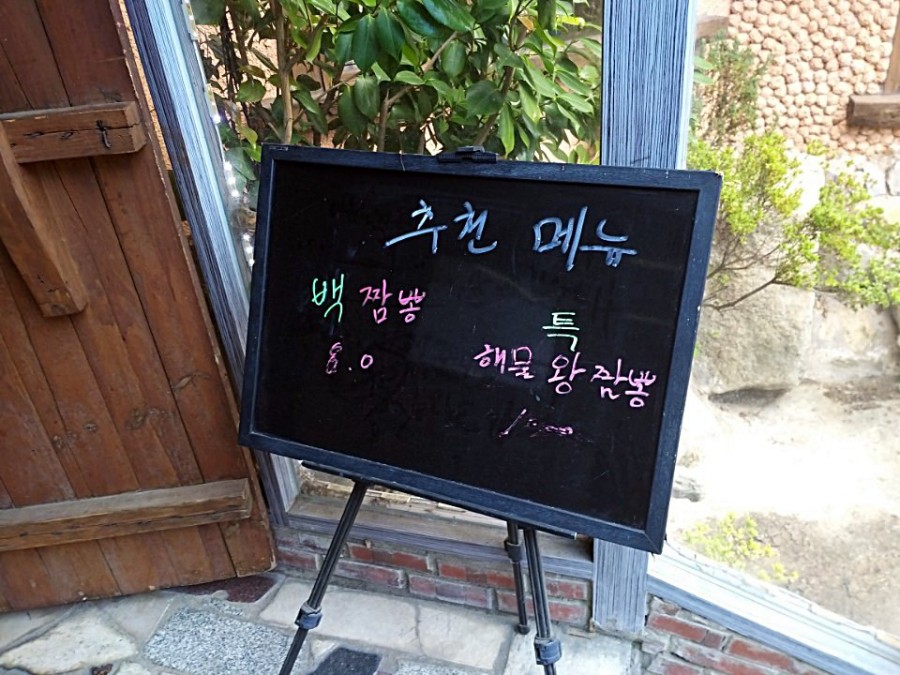 추천 메뉴
백 짬뽕
8.0
특
해물 왕짬뽕